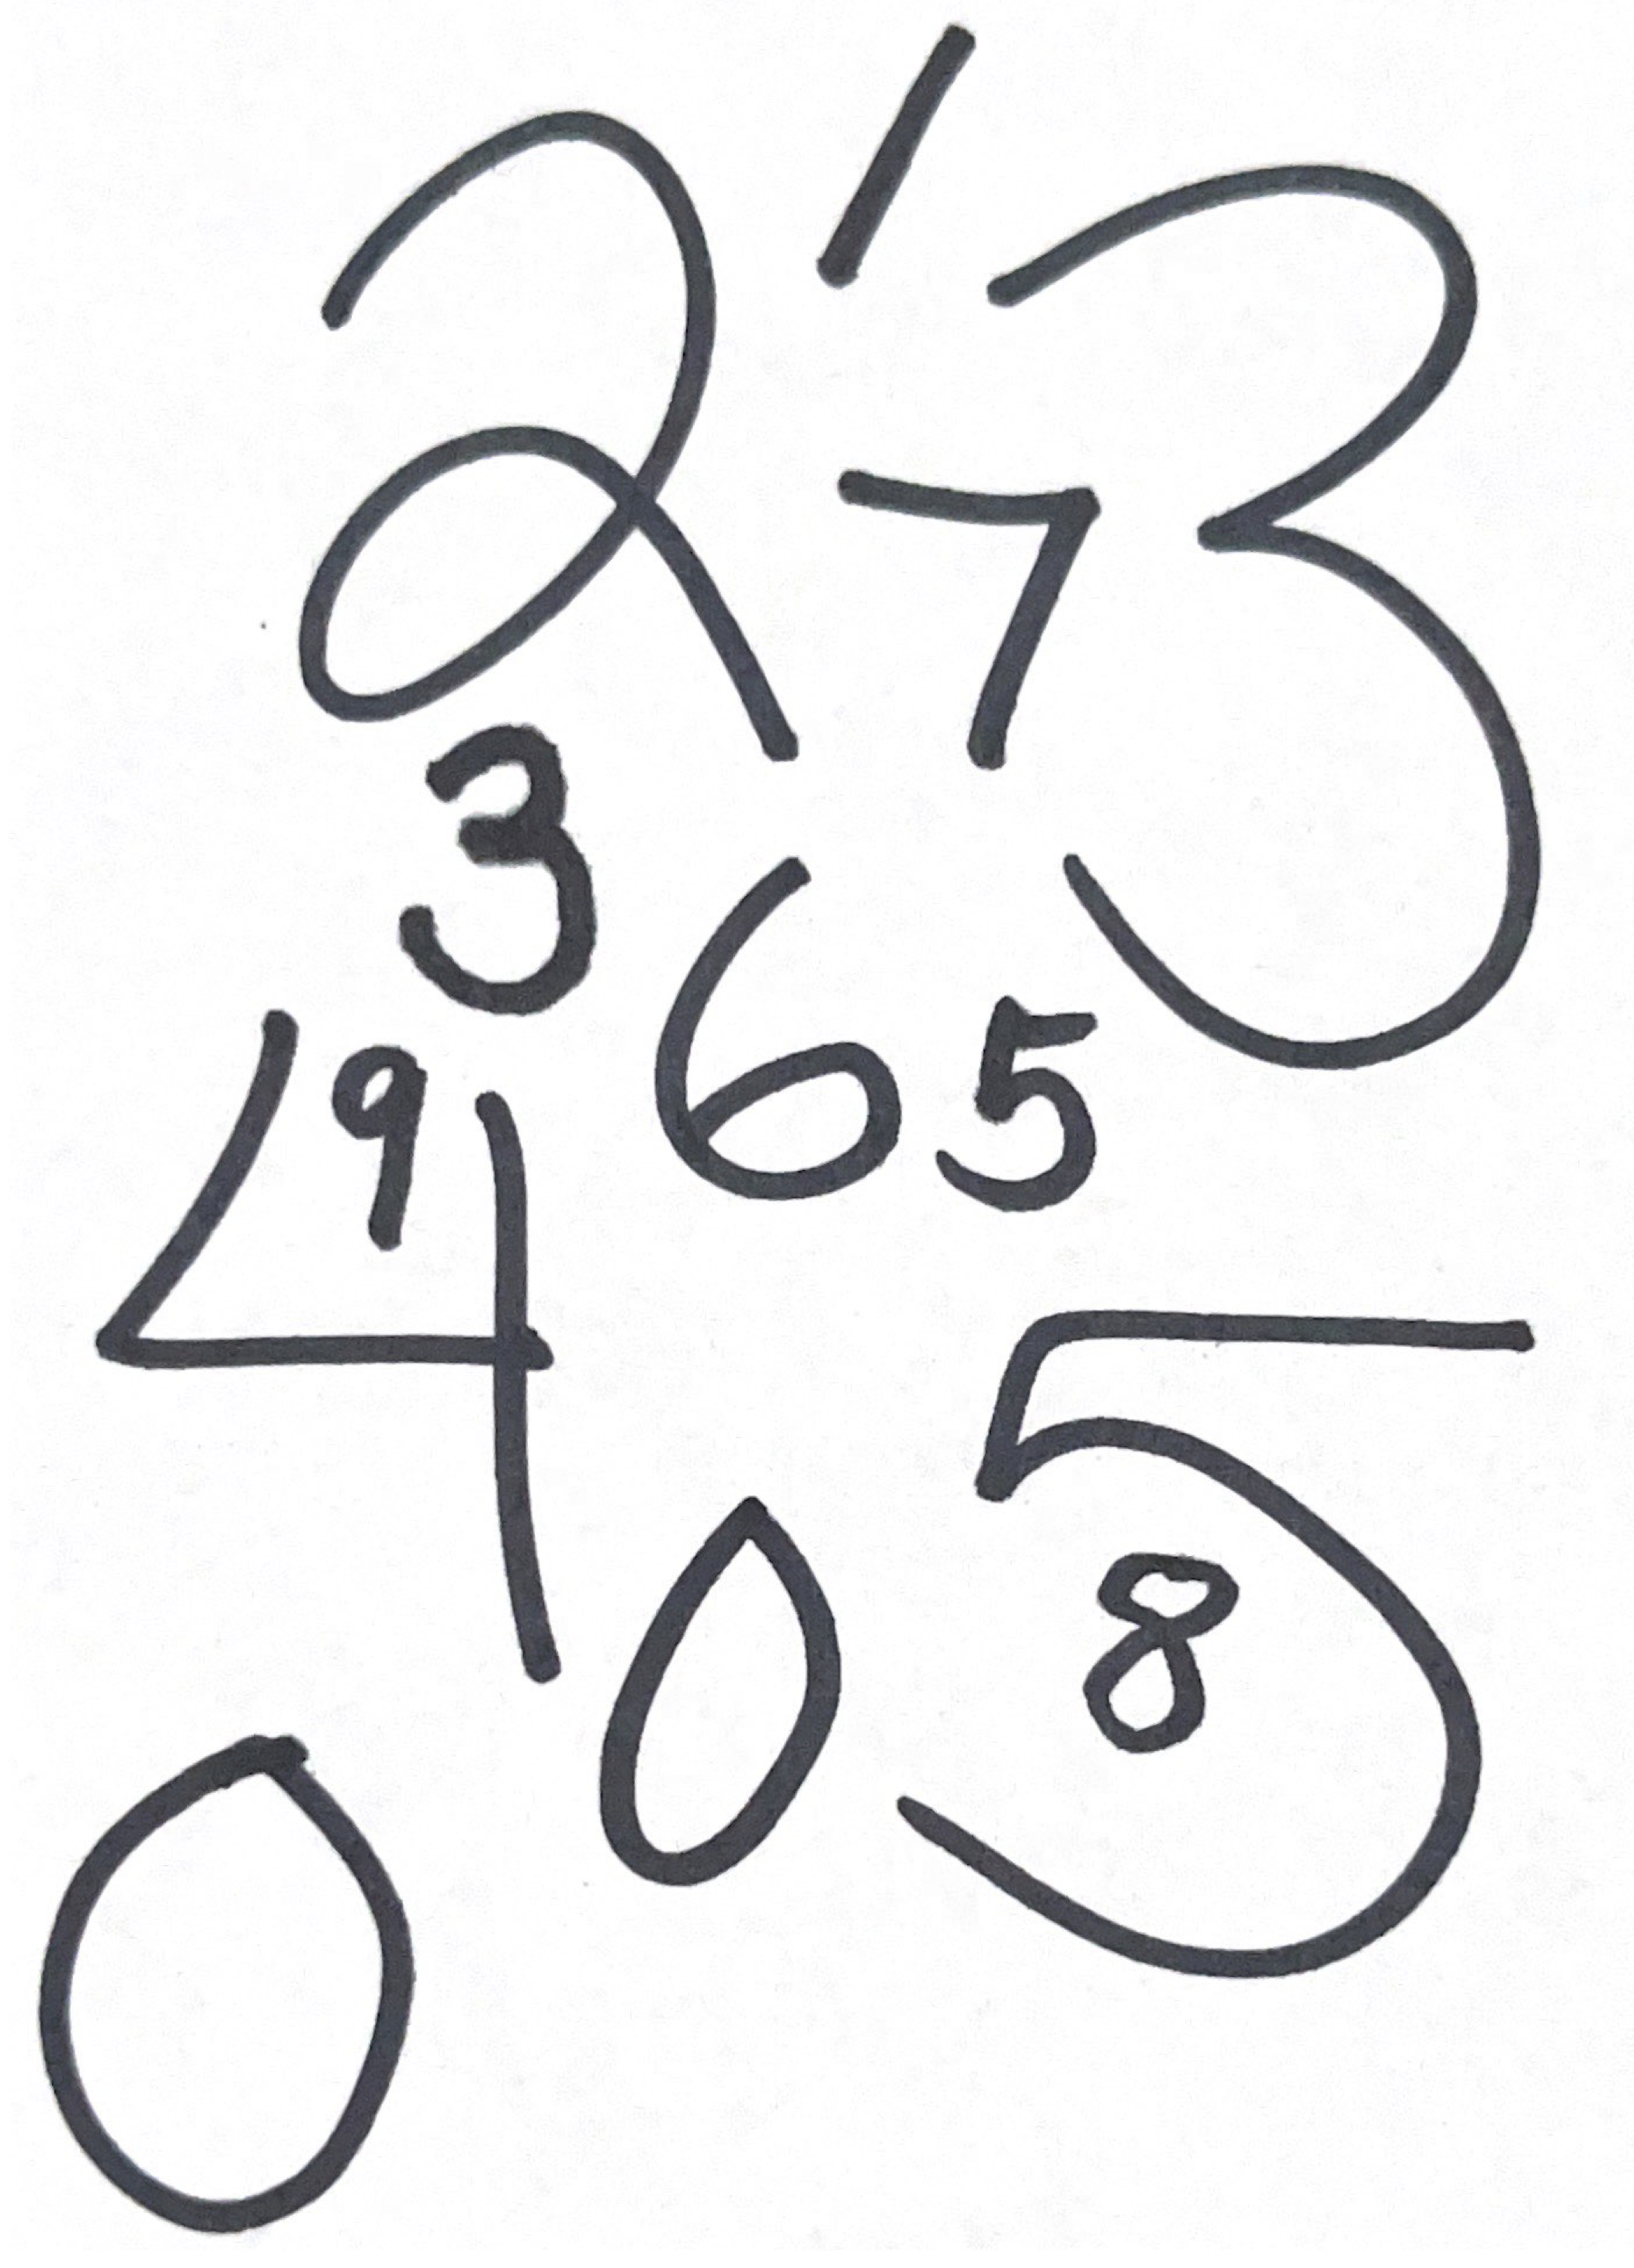 1
2 3
7
3
6 5
9
4
5
0 8
0